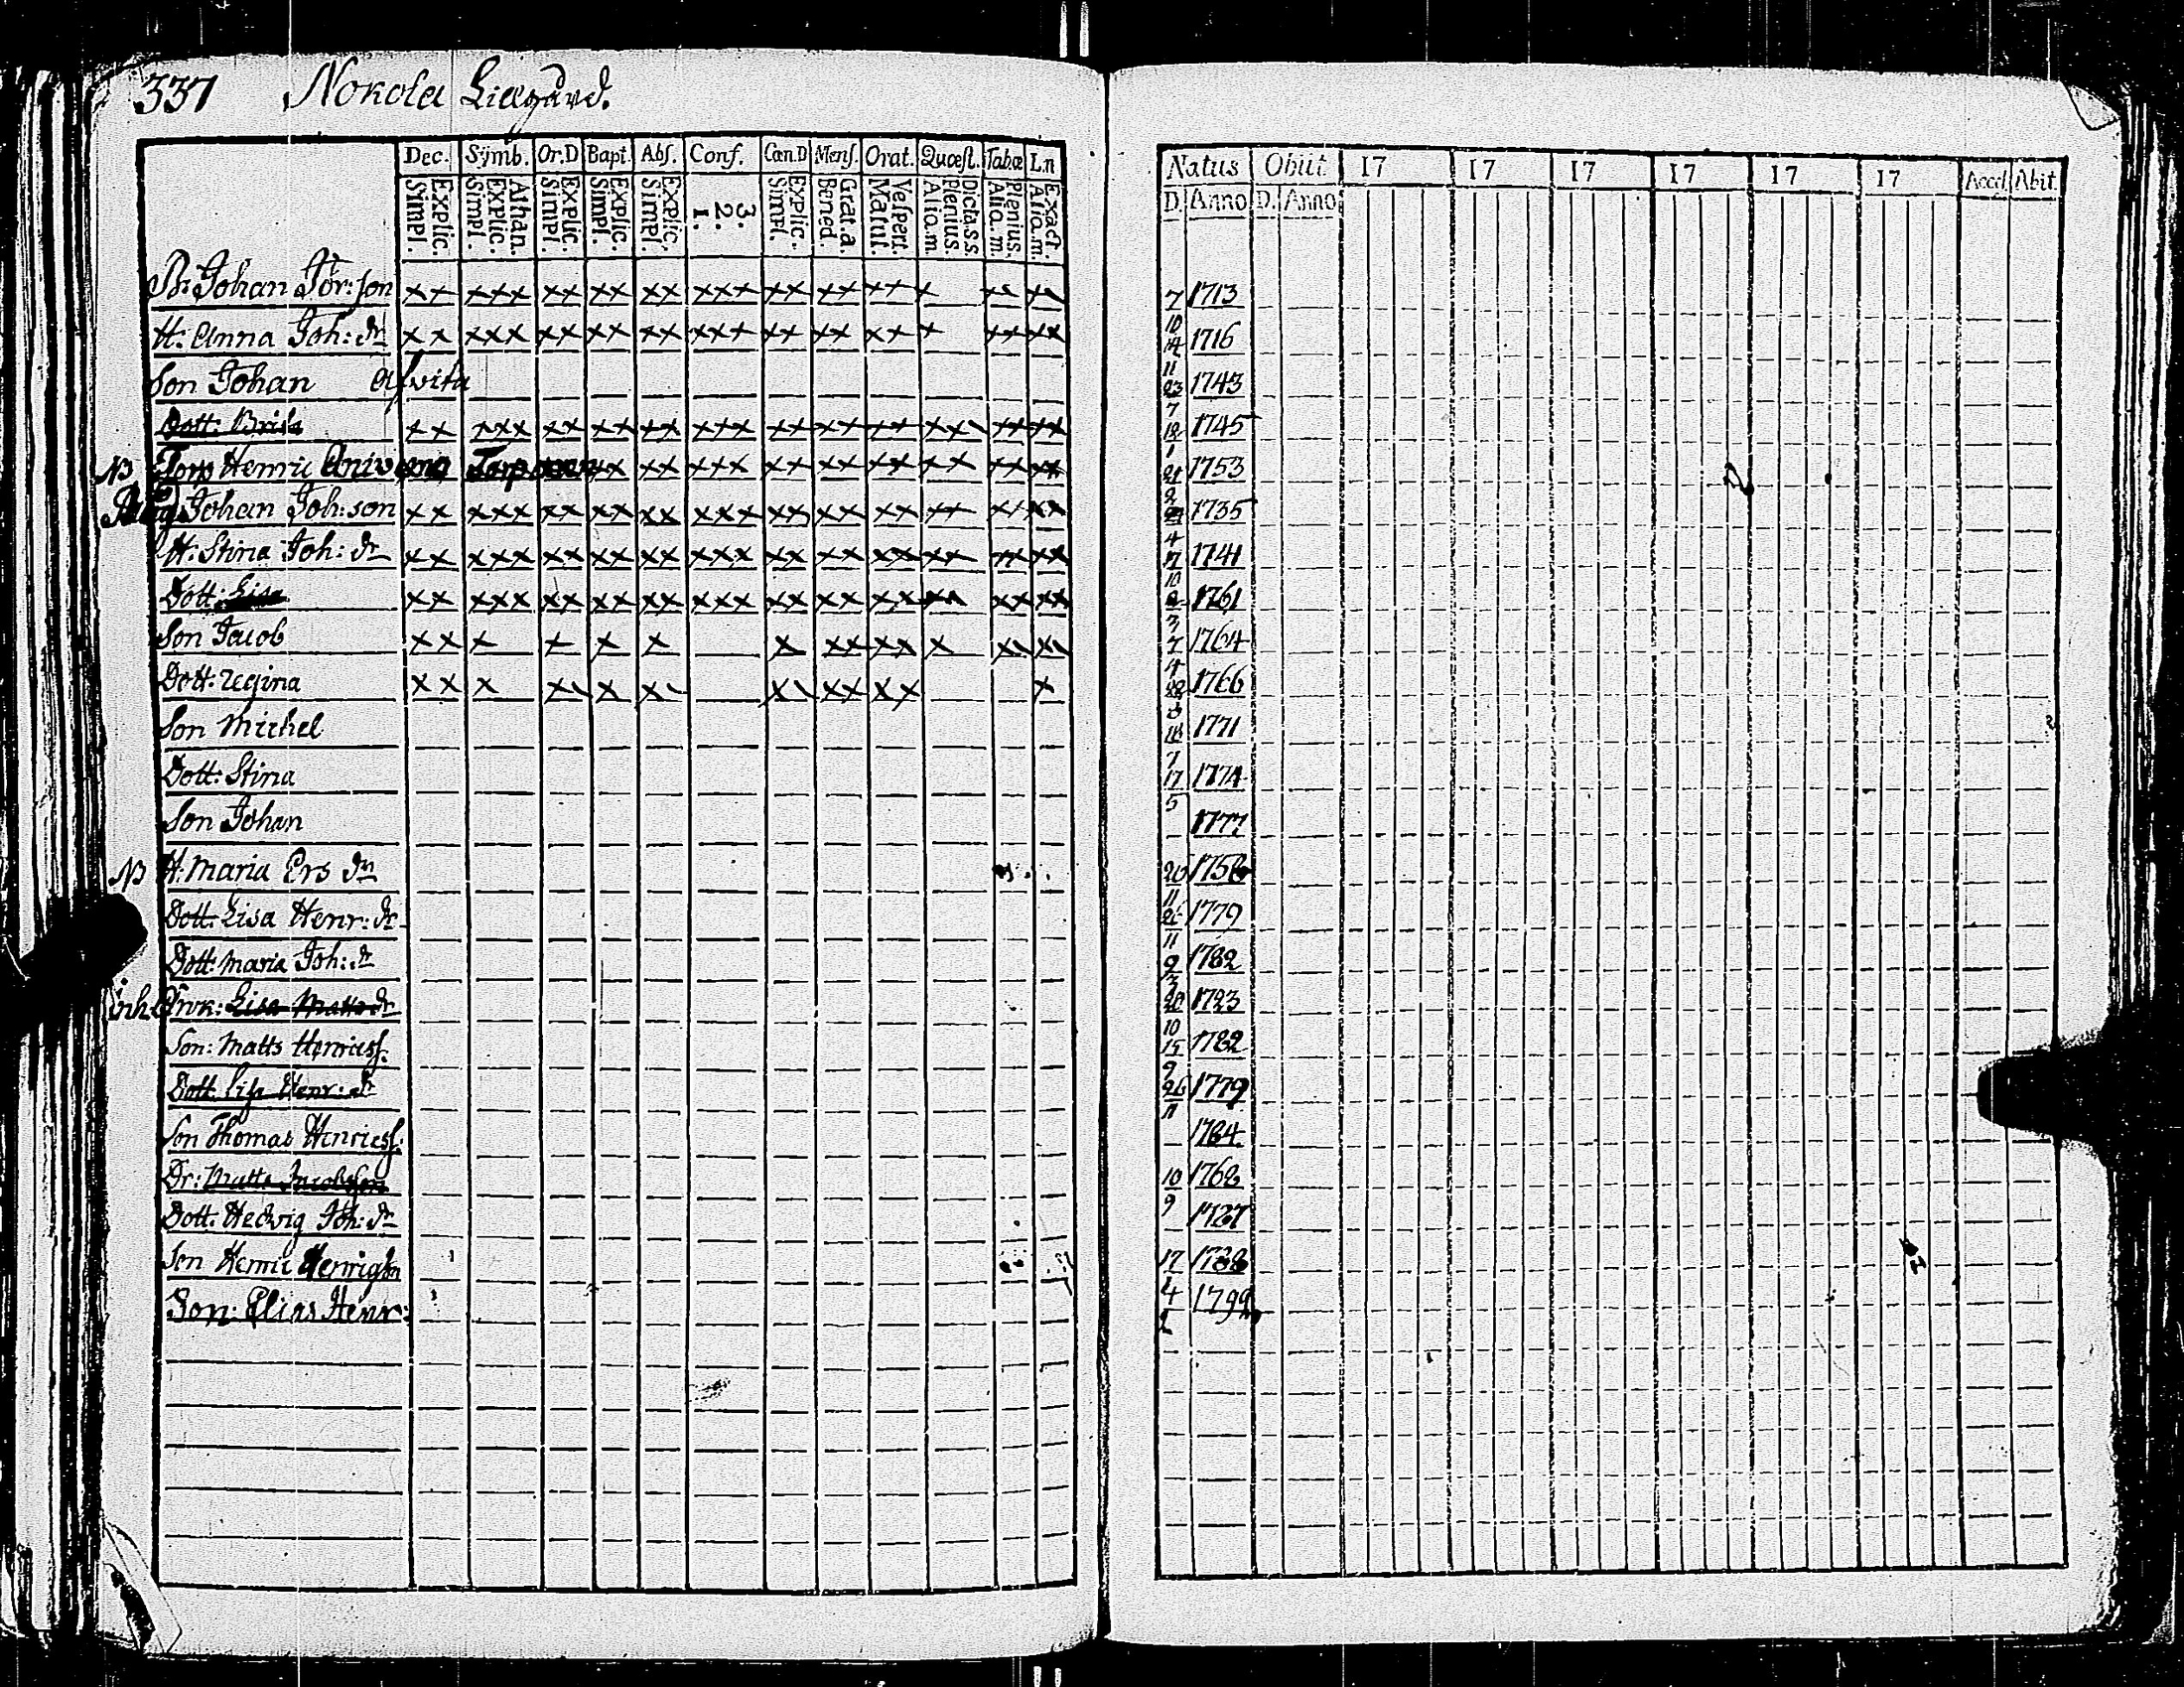 337 Nokola Lillgård.
Dec. Symb. Or.D Bapt. Abs. Conf. Cœn.D Mens. Orat. Quæst. Tabœ L.n
Explic. Simpl. Athan. Explic. Simpl. Explic. Simpl. Explic. Simpl. Explic. Simpl. 3. 2. 1. Explic. Simpl. Grat.a. Bened. Vespert. Matut. Dicta.s.s. Plenius. Aliq.m. Plenius. Aliq.m. Exact. Aliq.m.
Natus Obiit 17 17 17 17 17 17 Acced. Abit.
D. Anno D. Anno
Johan Jör:son xx xxx xx xx xx xxx xx xx xx x 7 1713
H. Anna Joh: dr xx xxx xx xx xx xxx xx xx xx x xx xx 10 14 1716
Son Johan Afvita 11 23 1743
Dott: Brita xx xxx xx xx xx xxx xx xx xx xx xx 7 1745
NB Torp Henric xx xx xxx xx xx xx xx xx xx 1 21 1753
Johan Joh:son xx xxx xx xx xx xxx xx xx xx xx xx xx 2 1735
H. Stina Joh: dr xx xxx xx xx xx xxx xx xx xx xx xx xx 4 17 1741
Dott: Lisa xx xxx xx xx xx xxx xx xx xx xx xx xx 10 1761
Son Jacob xx x x x x x xx xx x 3 7 1764
Dott: Regina xx x x x xx xx x 4 1766
Son Michel 1771
Dott: Stina 7 17 1774
Son Johan 5 1777
NB H. Maria Ers dr 20
Dott. Lisa Henr: dr 11 26 1779
Dott: Maria Joh: dr 11 9 1782
inh. Enk: Lisa Matts dr 3 20 1723
Son: Matts Henricss. 10 15 1782
Dott. Lisa Henr: dr 9 26 1779
Son Thomas Henricss: 11 1784
Dr: Matts Jacobsson 10 1762
Dott. Hedvig Joh: dr 9 1787
Son Henric Henrigson 17 1788
Son: Elias Henr: 4 1799